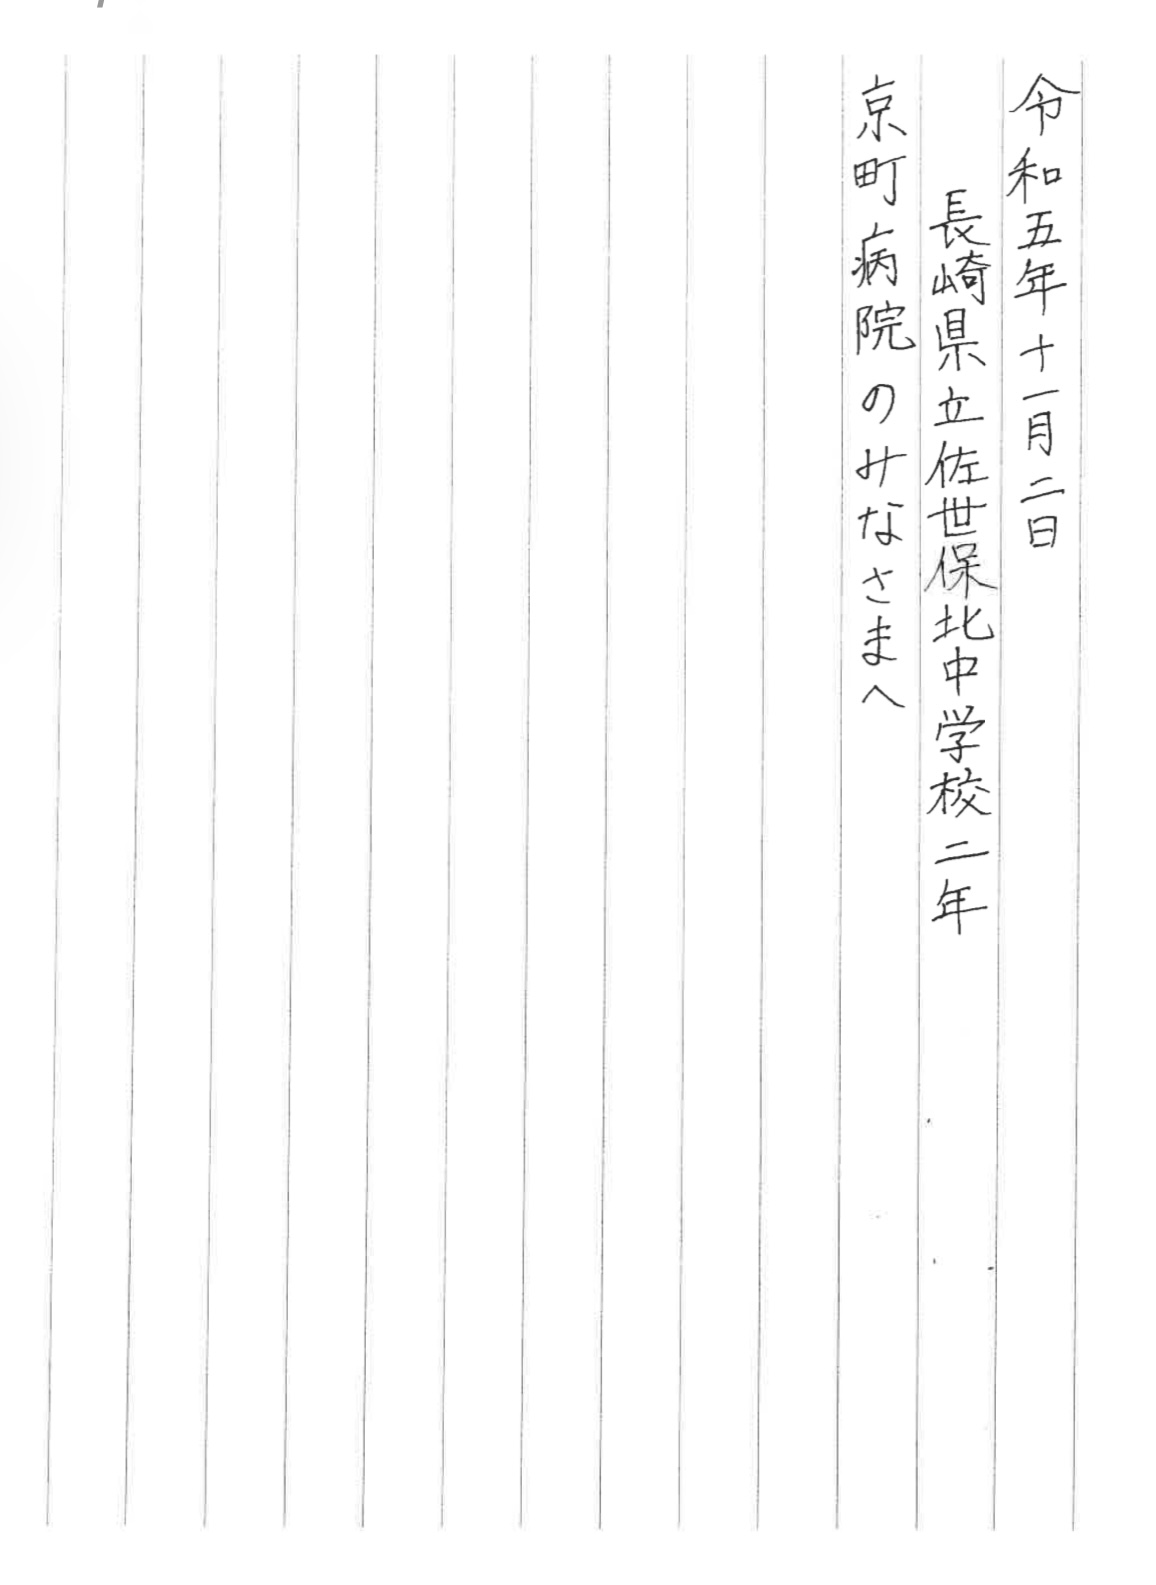 令和五年十一月二日
長崎県立佐世保北中学校二年
京町病院のみなさまへ